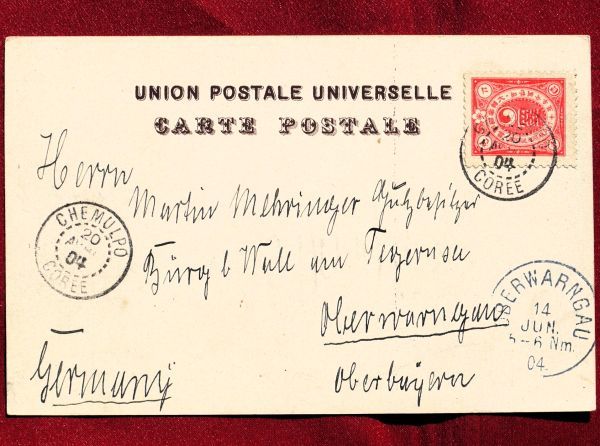 UNION POSTALE UNIVERSELLE
CARTE POSTALE
20
04
COREE
Herrn
Martin Mehringer Gutsbesitzer
CHEMULPO
20
04
COREE
Bürg b Wall am Tegernsee
Oberwarngau
OBERWARNGAU
14
JUN.
5-6 Nm.
04.
Germany
Oberbayern